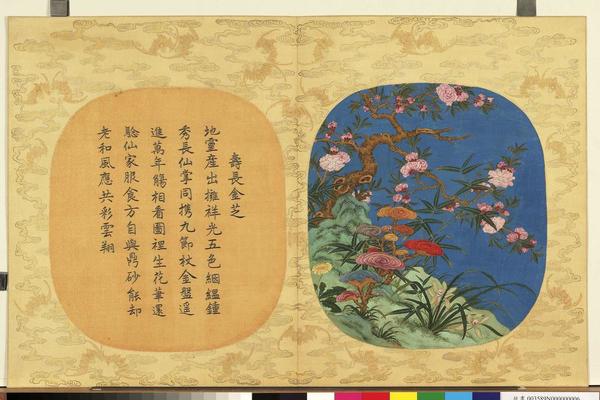 壽長金芝
地靈產出擁祥光五色絪縕鍾
秀長仙掌同携九節杖金盤遥
進萬年觴相看圖裡生花葦還
驗仙家服食方自與鼎砂能却
老和風應共彩雲翔